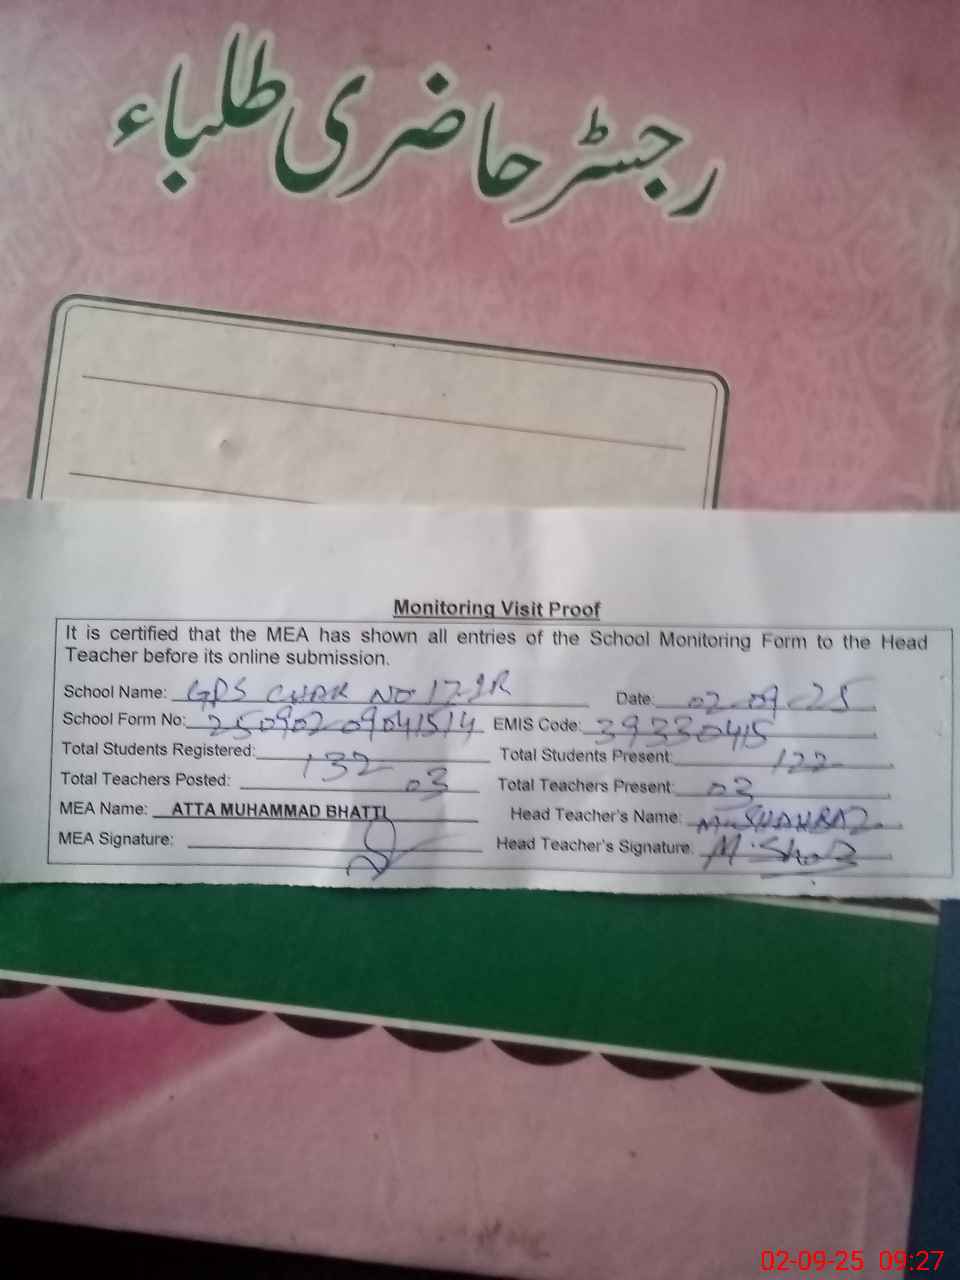 رجسٹر حاضری طلباء
Monitoring Visit Proof
It is certified that the MEA has shown all entries of the School Monitoring Form to the Head
Teacher before its online submission.
School Name: GPS CHAK NO Date: 02-09-25
School Form No: EMIS Code: 39330415
Total Students Registered: 132 Total Students Present: 122
Total Teachers Posted: 03 Total Teachers Present: 03
MEA Name: ATTA MUHAMMAD BHATTI Head Teacher's Name:
MEA Signature: Head Teacher's Signature:
02-09-25 09:27